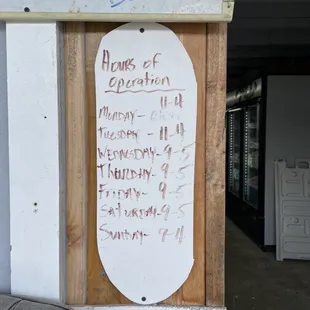 Hours of
operation
11-4
Monday-
Tuesday - 11-4
Wednesday-9-5
Thursday-9-5
Friday- 9-5
Saturday-9-5
Sunday- 9-4